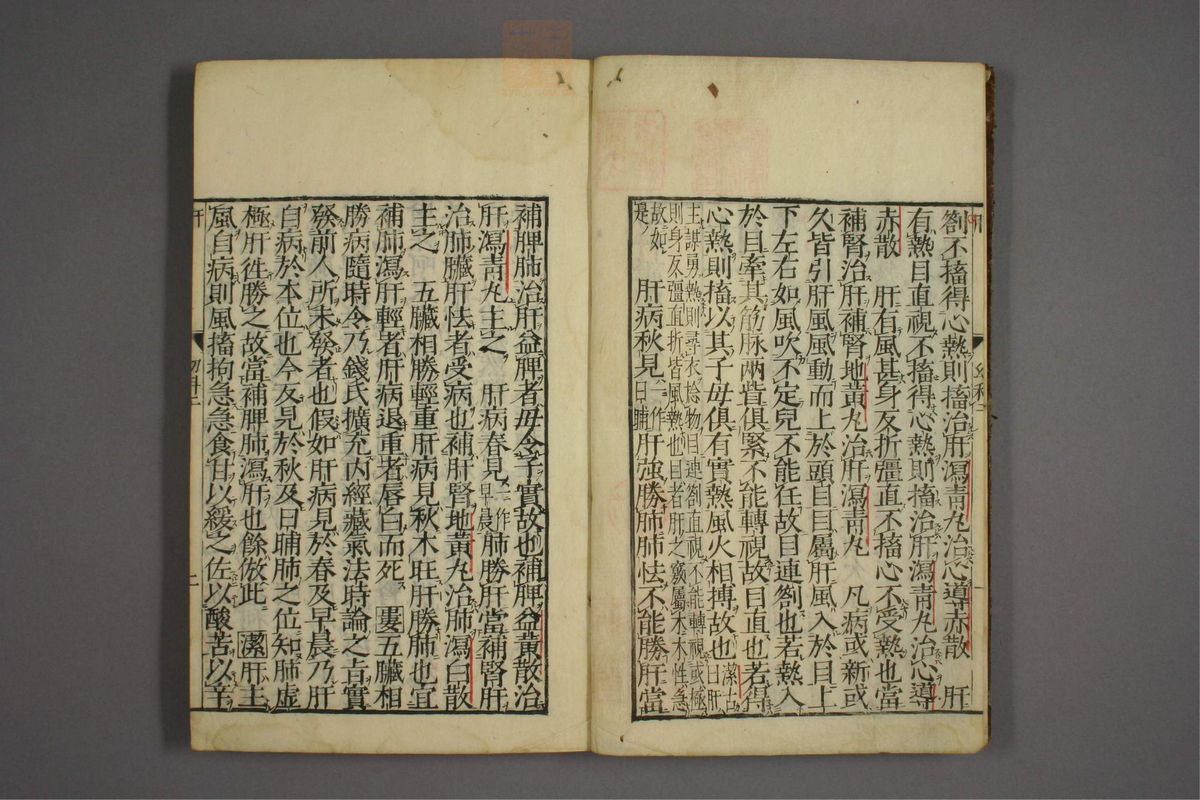 劄不搐得心熱則搐治肝瀉青丸治心導赤散　肝
有熱目直視不搐得心熱則搐治肝瀉青丸治心導
赤散　肝有風甚身反折彊直不搐心不受熱也當
補腎治肝補腎地黃丸治肝瀉青丸　凡病或新或
久皆引肝風風動而上於頭目目屬肝風入於目上
下左右如風吹不定兒不能任故目連劄也若熱入
於目牽其筋脉兩眥俱緊不能轉視故目直也若得
心熱則搐以其子母俱有實熱風火相搏故也潔古曰肝
主謀勇熱則尋衣捻物目連劄直視不能轉視或極
則身反彊直折皆風熱也目者肝之竅屬木木性急
故如是　肝病秋見一作日晡肝強勝肺肺怯不能勝肝當
補脾肺治肝益脾者母令子實故也補脾益黃散治
肝瀉青丸主之　肝病春見一作早晨肺勝肝當補腎肝
治肺臟肝怯者受病也補肝腎地黃丸治肺瀉白散
主之　五臟相勝輕重肝病見秋木旺肝勝肺也宜
補肺瀉肝輕者肝病退重者唇白而死　婁五臟相
勝病隨時令乃錢氏擴充內經藏氣法時論之旨實
發前人所未發者也假如肝病見於春及早晨乃肝
自病於本位也今反見於秋及日晡肺之位知肺虛
極肝徃勝之故當補脾肺瀉肝也餘倣此　潔肝主
風自病則風搐拘急急食甘以緩之佐以酸苦以辛
幼科二